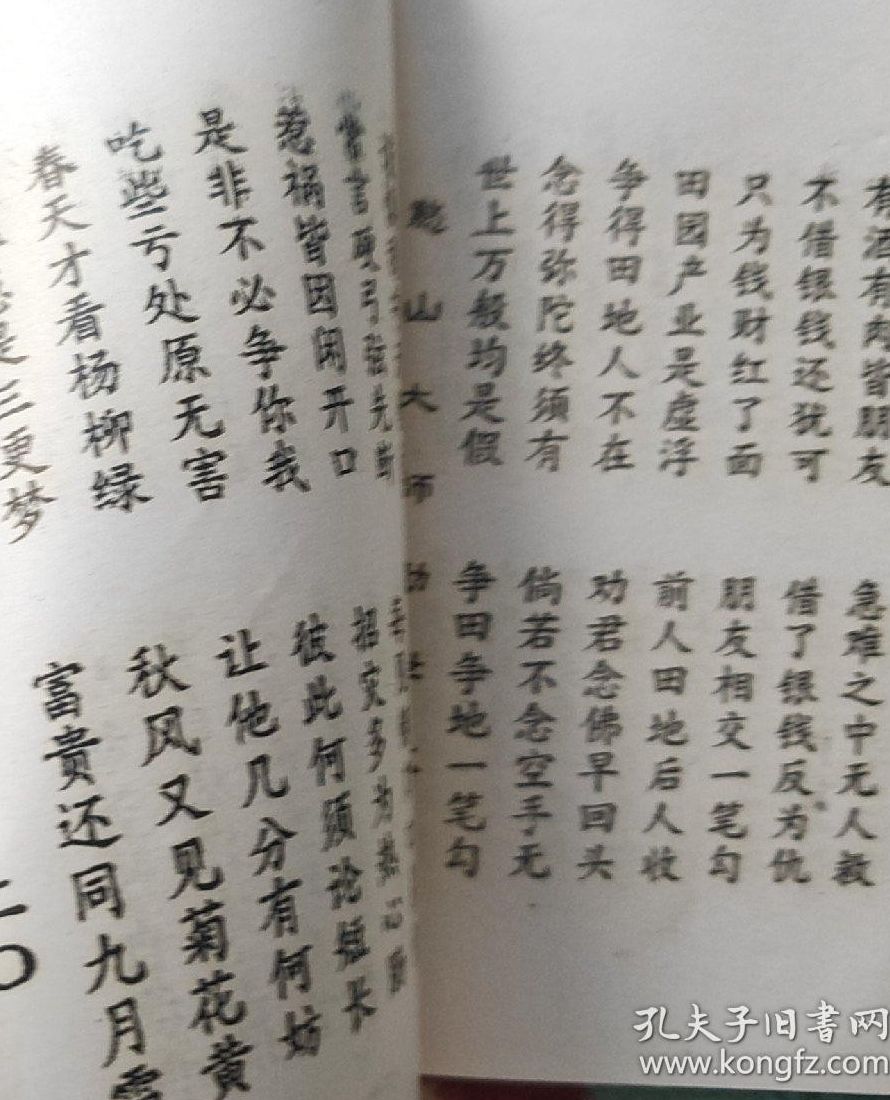 有酒有肉皆朋友 急难之中无人救
不借银钱还犹可 借了银钱反为仇
只为钱财红了面 朋友相交一笔勾
田园产业是虚浮 前人田地后人收
争得田地人不在 劝君念佛早回头
念得弥陀终须有 倘若不念空手无
世上万般均是假 争田争地一笔勾
山大师
常言硬弓弦先断
惹祸皆因闲开口 招灾多为热心
是非不必争你我 彼此何须论短长
吃些亏处原无害 让他几分有何妨
春天才看杨柳绿 秋风又见菊花黄
是三更梦 富贵还同九月
二〇
孔夫子旧书网
www.kongfz.com